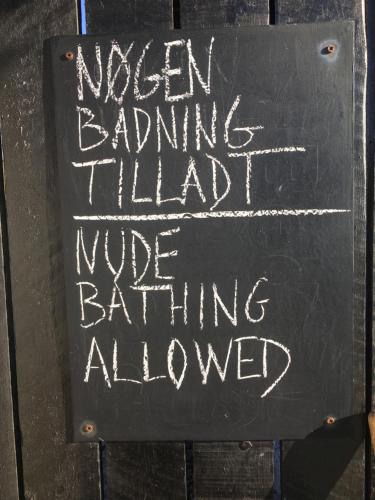 NØGEN
BADNING
TILLADT
NUDE
BATHING
ALLOWED